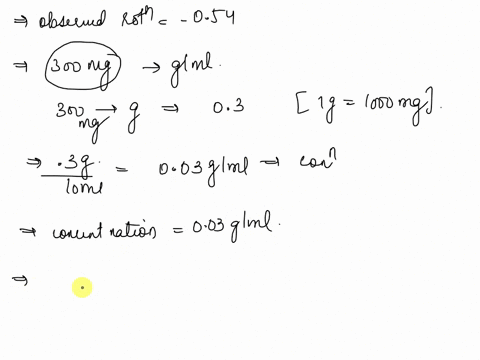 ⇒ observed Rotⁿ = - 0.54
⇒ 300 mg → g/ml.
300 mg → g ⇒ 0.3 [1g = 1000 mg].
⇒ .3g / 10ml = 0.03 g/ml → conⁿ
→ concentration = 0.03 g/ml.
⇒